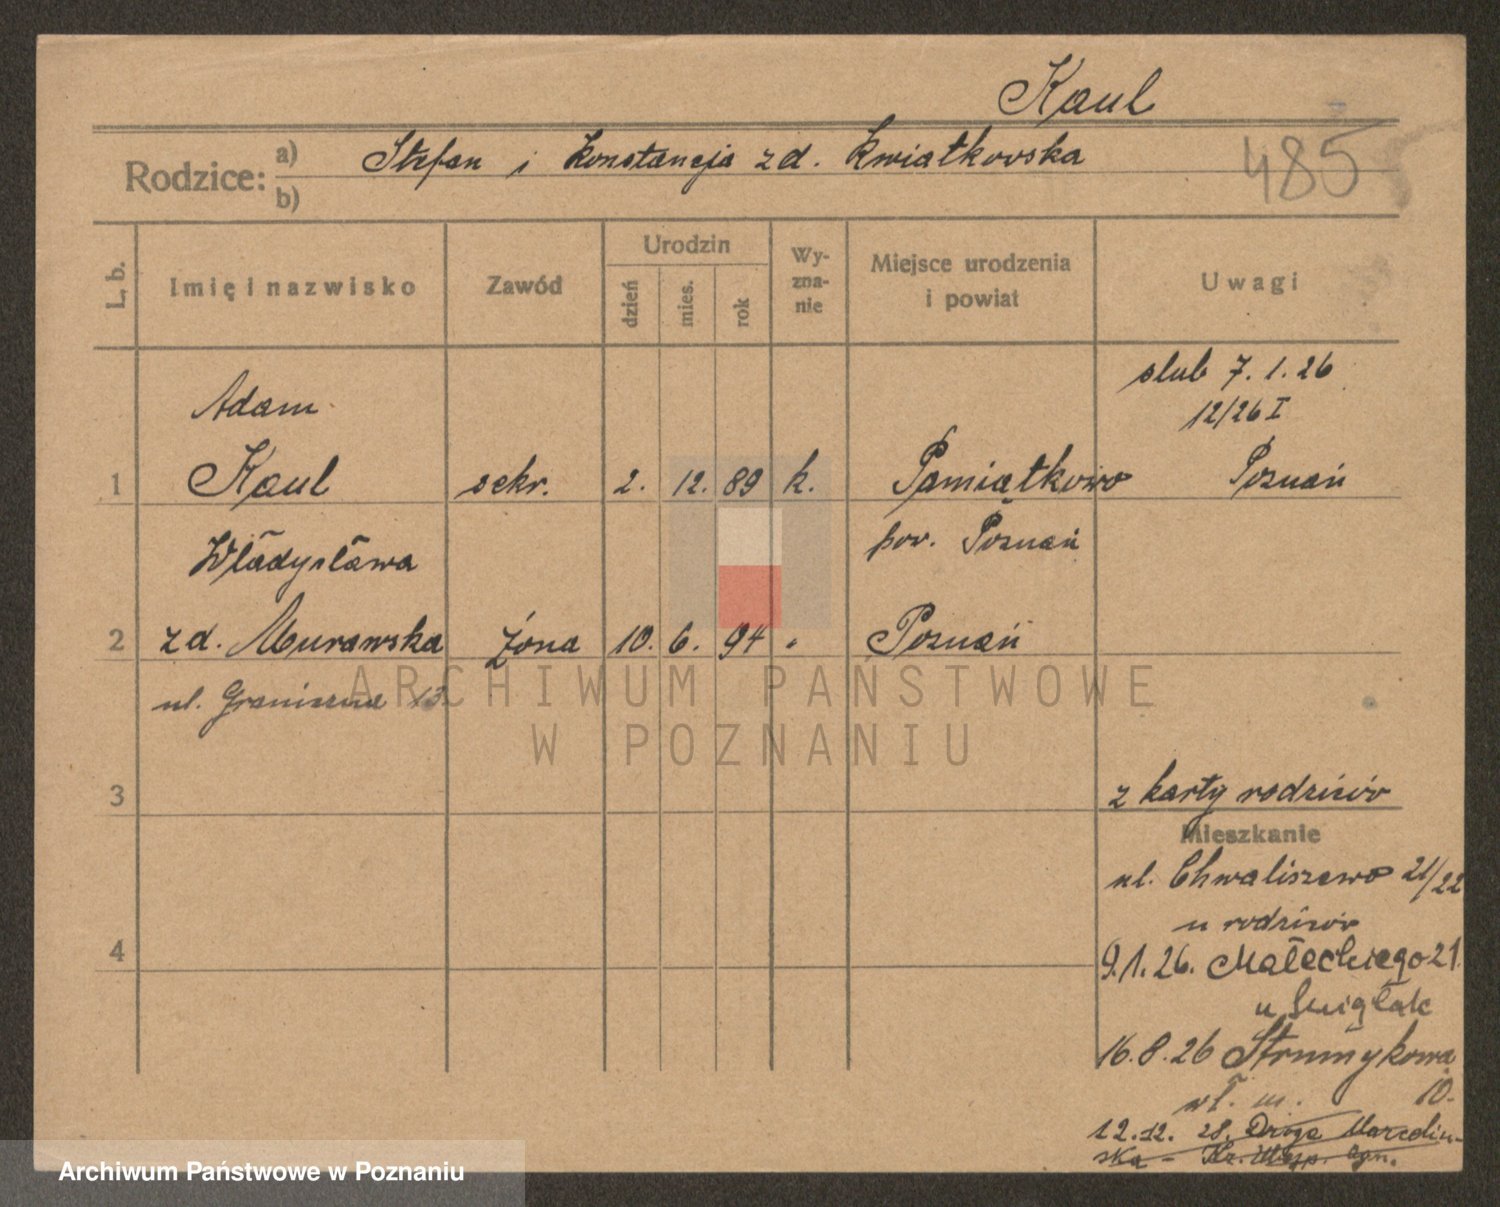 Kaul
Rodzice: a) b) Stefan i Konstancja zd. Kwiatkowska 485
L. b. Imię i nazwisko Zawód Urodzin dzień mies. rok Wyznanie Miejsce urodzenia i powiat Uwagi
slub 7.1.26
12/26 I
Adam
1 Kaul sekr. 2. 12. 89 k. Pamiątkowo Poznań
Władysława pow. Poznań
2 zd. Murawska żona 10. 6. 94 " Poznań
ul. Graniczna 13
ARCHIWUM PAŃSTWOWE
W POZNANIU
3 z karty rodziców
Mieszkanie
ul. Chwaliszewo 21/22
u rodziców
4
9.1.26. Małeckiego 21.
u
16.8.26 Strumykowa
wł. m. 10.
12.12. 28. Droga Marceliń-
ska -
Archiwum Państwowe w Poznaniu